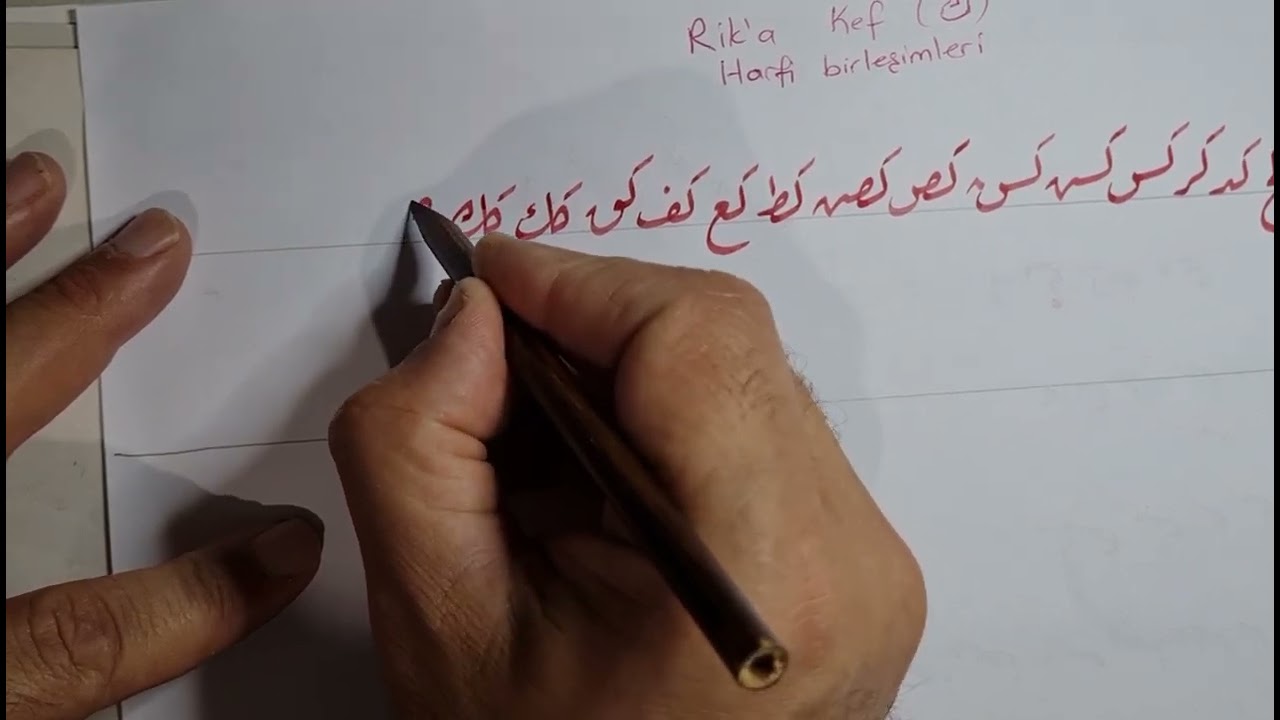 Rik'a Kef (ك)
Harfi birleşimleri
كد كر كس كسـ كس كص كصـ كص كط كع كف كق كك كك